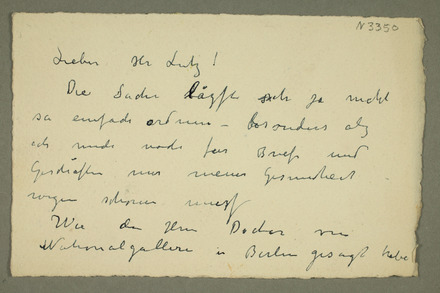 N 3350
Lieber Hr Lutz!
Die Sache läßt sich ja nicht
so einfach ordnen – besonders da
ich mich noch für Briefe und
Geschäfte nur meiner Gesundheit
wegen schonen muss
Wie den Herrn Doctor von
Nationalgallerie in Berlin gesagt habe